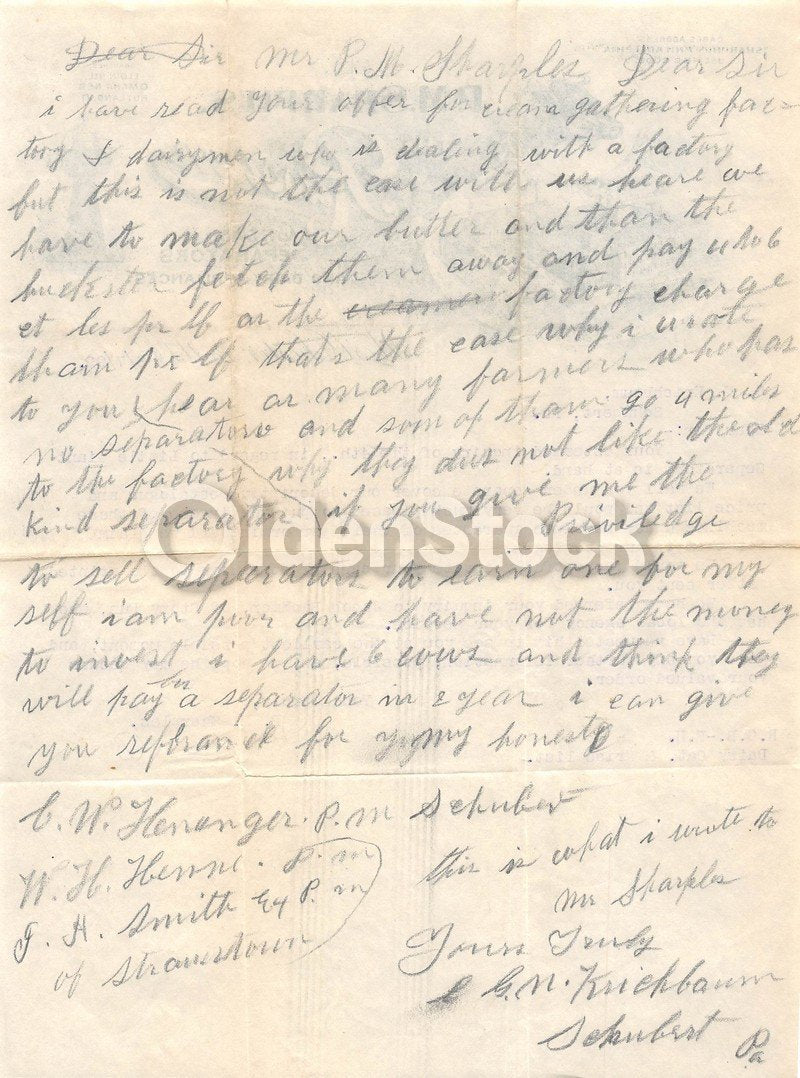 Dear Sir Mr P. M. Sharples Dear Sir
i have read your offer for cream gathering fac=
tory & dairymen who is dealing with a factory
but this is not the case with us heare we
have to make our butter and than the
huckster fetch them away and pay us
ct les pr lb or the creamer factory charge
tham pr lb thats the case why i wrote
to you hear ar many farmers who has
no separators and som of tham go 4 miles
to the factory why they dus not like the old
kind separator if you give me the
Priviledge
to sell separators to earn one for my
self i am poor and have not the money
to invest i have 6 cows and think they
will pay for a separator in 2 year i can give
you for my honesty
C. W. Henanger. P. m Schubert
W. H. Henne. P. m
J. H. Smith Eq P. m
of Strausstown
this is what i wrote to
Mr Sharples
Yours Truly
G. N. Krichbaum
Schubert Pa
OldenStock